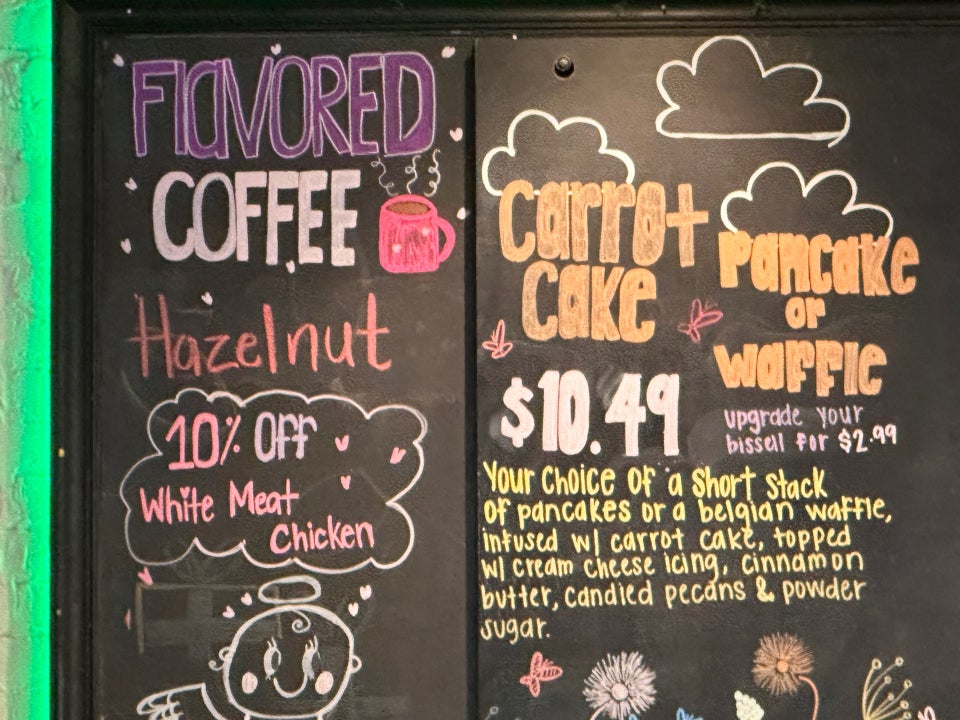 FLAVORED
COFFEE
Hazelnut
10% Off
White Meat
Chicken
Carrot
Cake
$10.49
Pancake
or
Waffle
upgrade your
bissell for $2.99
Your Choice Of a Short Stack
Of pancakes or a belgian waffle,
infused w/ carrot cake, topped
w/ cream cheese icing, cinnamon
butter, candied pecans & powder
sugar.